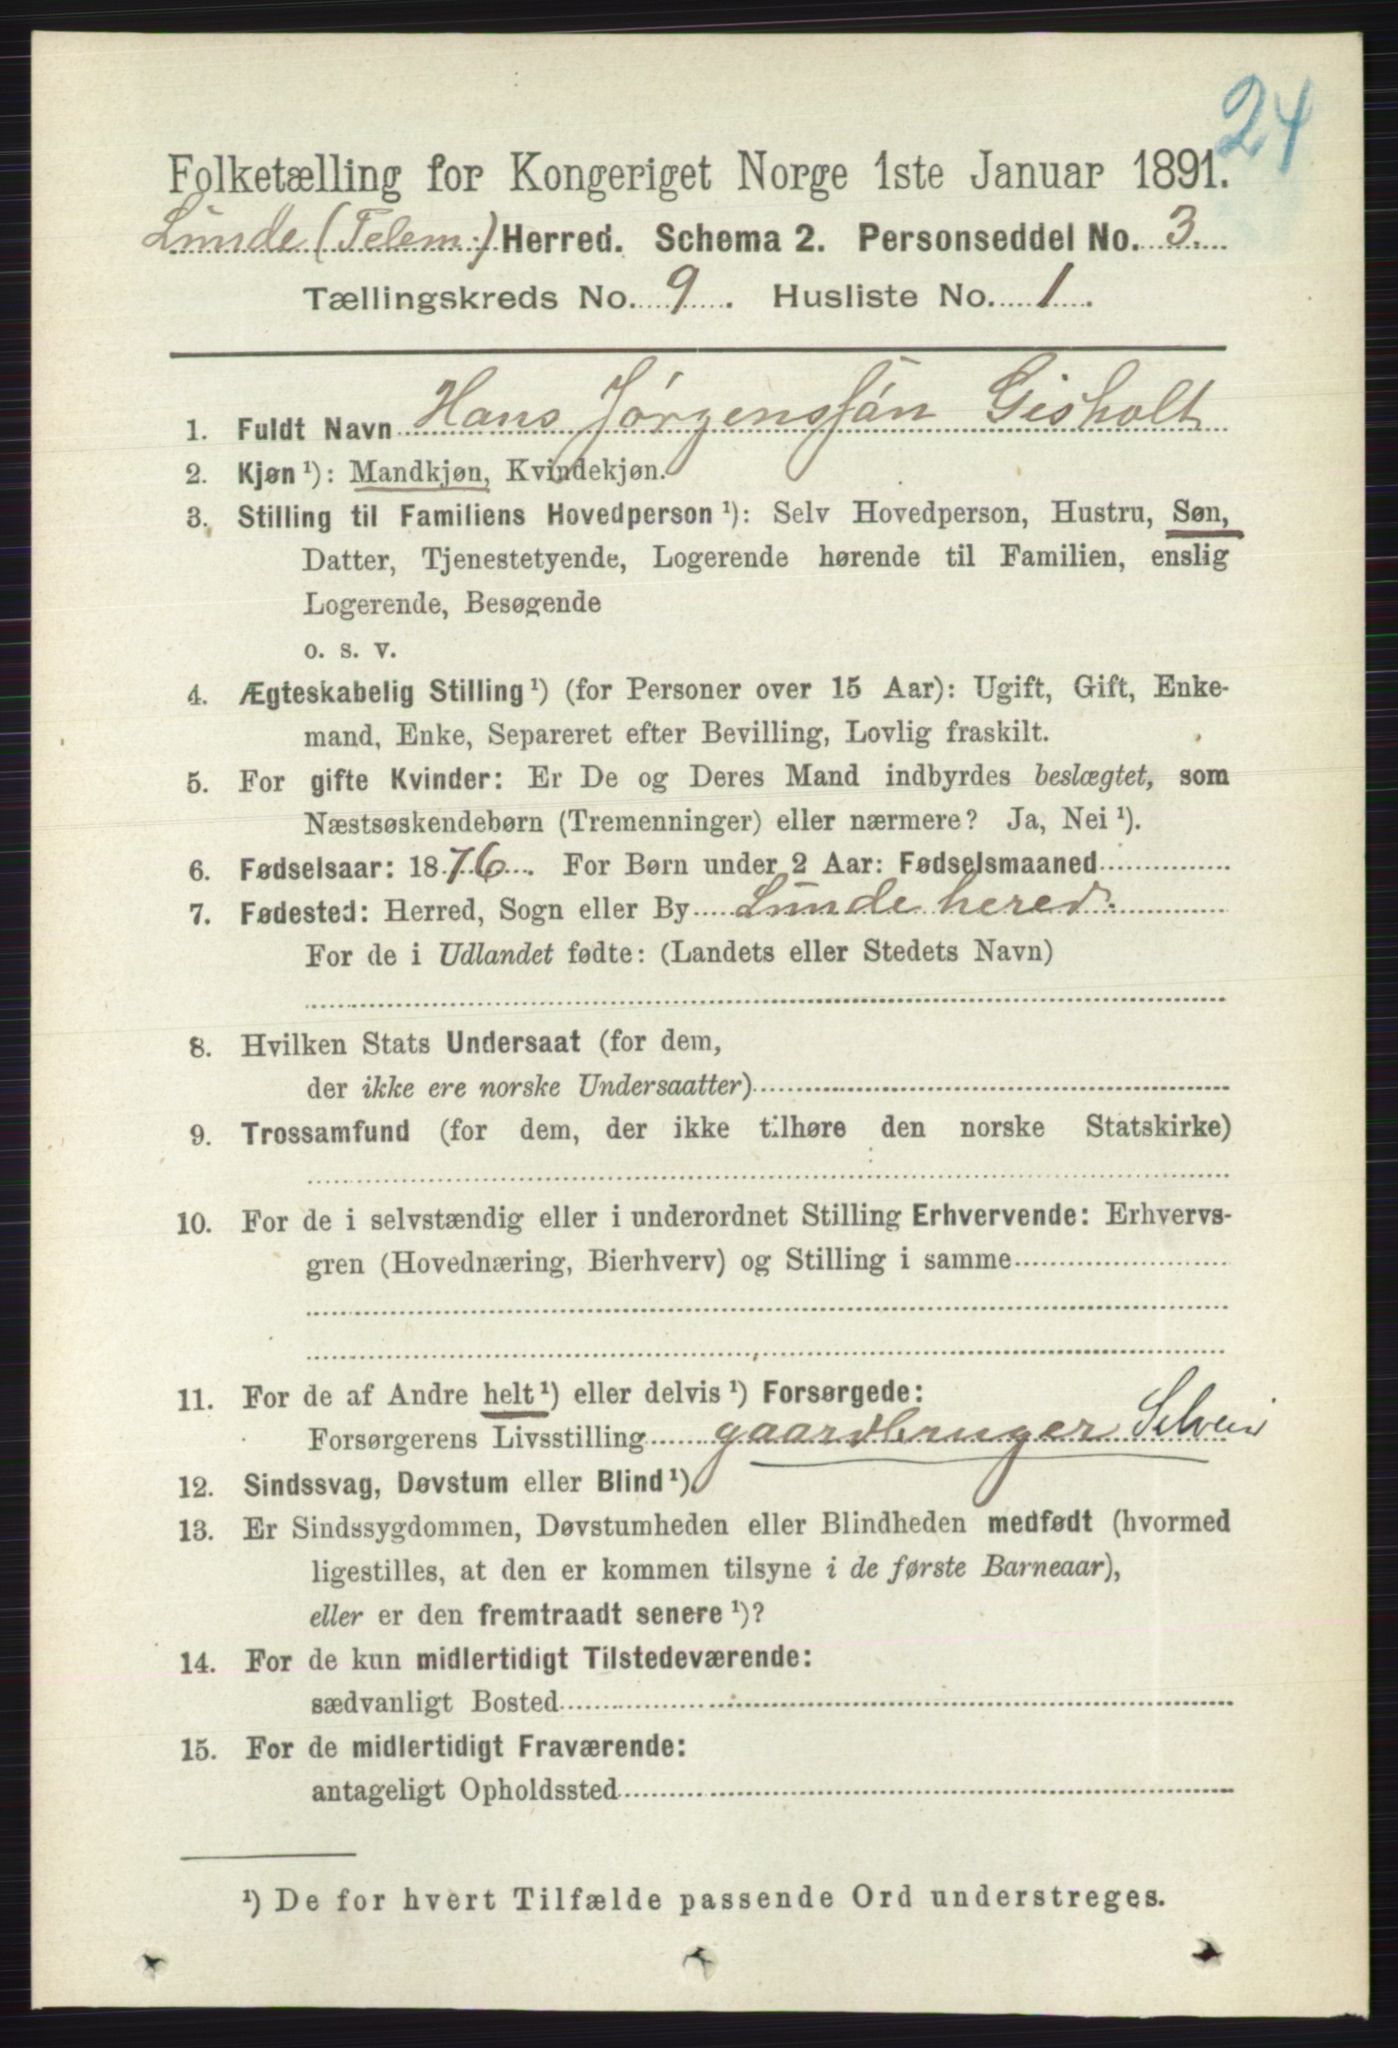 24
Folketælling for Kongeriget Norge 1ste Januar 1891.
Lunde (Telem.) Herred. Schema 2. Personseddel No. 3.
Tællingskreds No. 9. Husliste No. 1.
1. Fuldt Navn Hans Jørgenssøn Gisholt
2. Kjøn ¹): Mandkjøn, Kvindekjøn.
3. Stilling til Familiens Hovedperson ¹): Selv Hovedperson, Hustru, Søn,
Datter, Tjenestetyende, Logerende hørende til Familien, enslig
Logerende, Besøgende
o. s. v.
4. Ægteskabelig Stilling ¹) (for Personer over 15 Aar): Ugift, Gift, Enke-
mand, Enke, Separeret efter Bevilling, Lovlig fraskilt.
5. For gifte Kvinder: Er De og Deres Mand indbyrdes beslægtet, som
Næstsøskendebørn (Tremenninger) eller nærmere? Ja, Nei ¹).
6. Fødselsaar: 1876. For Børn under 2 Aar: Fødselsmaaned
7. Fødested: Herred, Sogn eller By Lunde hered.
For de i Udlandet fødte: (Landets eller Stedets Navn)
8. Hvilken Stats Undersaat (for dem,
der ikke ere norske Undersaatter)
9. Trossamfund (for dem, der ikke tilhøre den norske Statskirke)
10. For de i selvstændig eller i underordnet Stilling Erhvervende: Erhvervs-
gren (Hovednæring, Bierhverv) og Stilling i samme
11. For de af Andre helt ¹) eller delvis ¹) Forsørgede:
Forsørgerens Livsstilling gaardbruger Selveier
12. Sindssvag, Døvstum eller Blind ¹).
13. Er Sindssygdommen, Døvstumheden eller Blindheden medfødt (hvormed
ligestilles, at den er kommen tilsyne i de første Barneaar),
eller er den fremtraadt senere ¹)?
14. For de kun midlertidigt Tilstedeværende:
sædvanligt Bosted
15. For de midlertidigt Fraværende:
antageligt Opholdssted
¹) De for hvert Tilfælde passende Ord understreges.